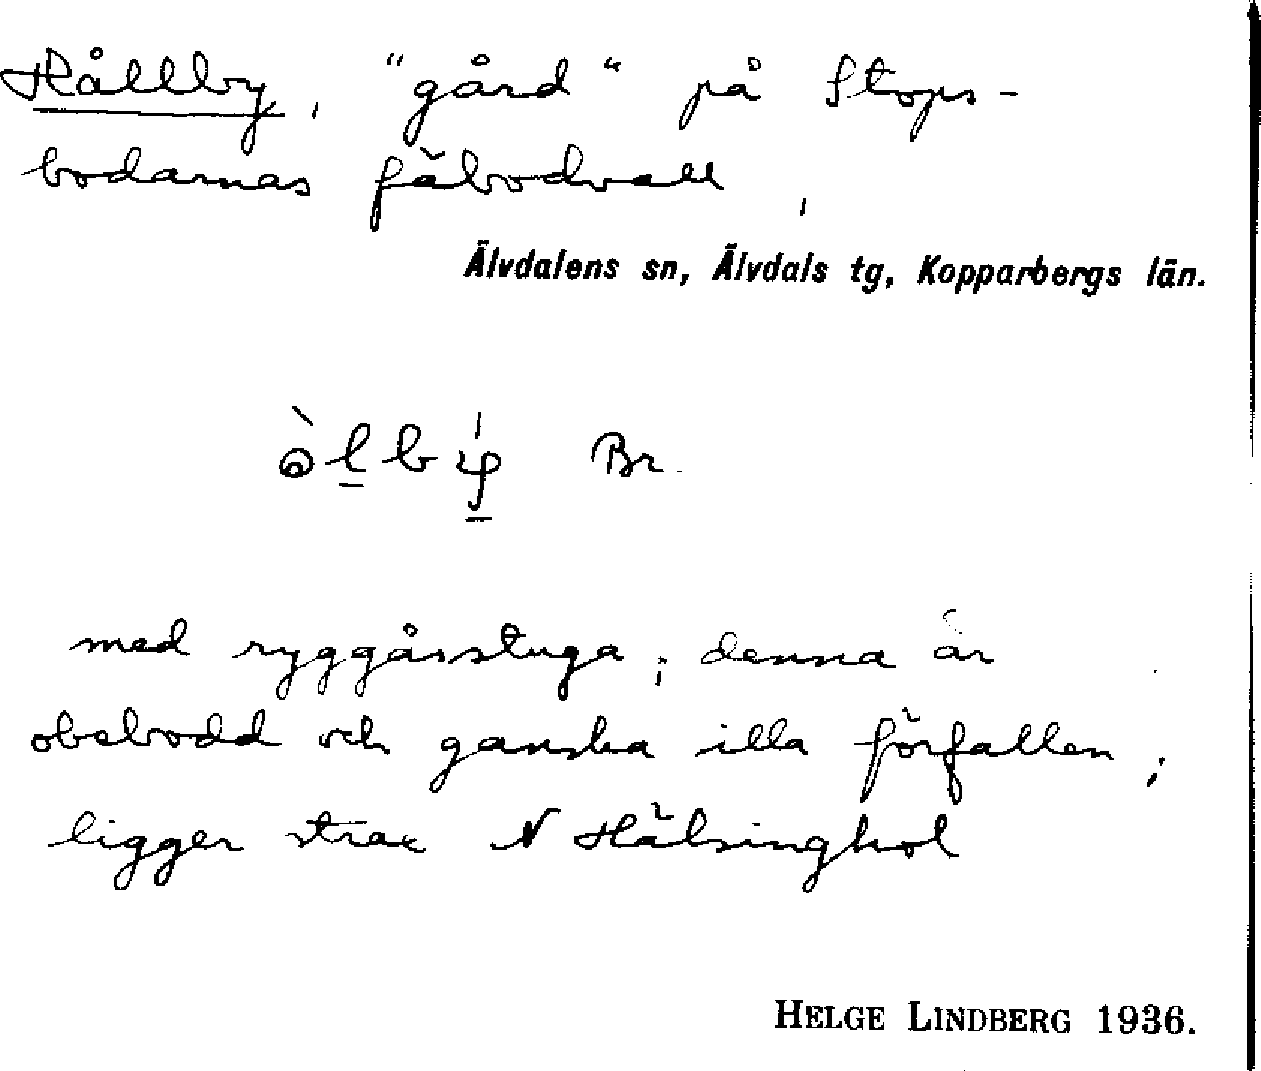 Hållby, "gård" på Stops-
bodarnas fäbodvall,
Älvdalens sn, Älvdals tg, Kopparbergs län.
Br.
med ryggåsstuga; denna är
obebodd och ganska illa förfallen;
ligger strax N Hälsinghol
HELGE LINDBERG 1936.